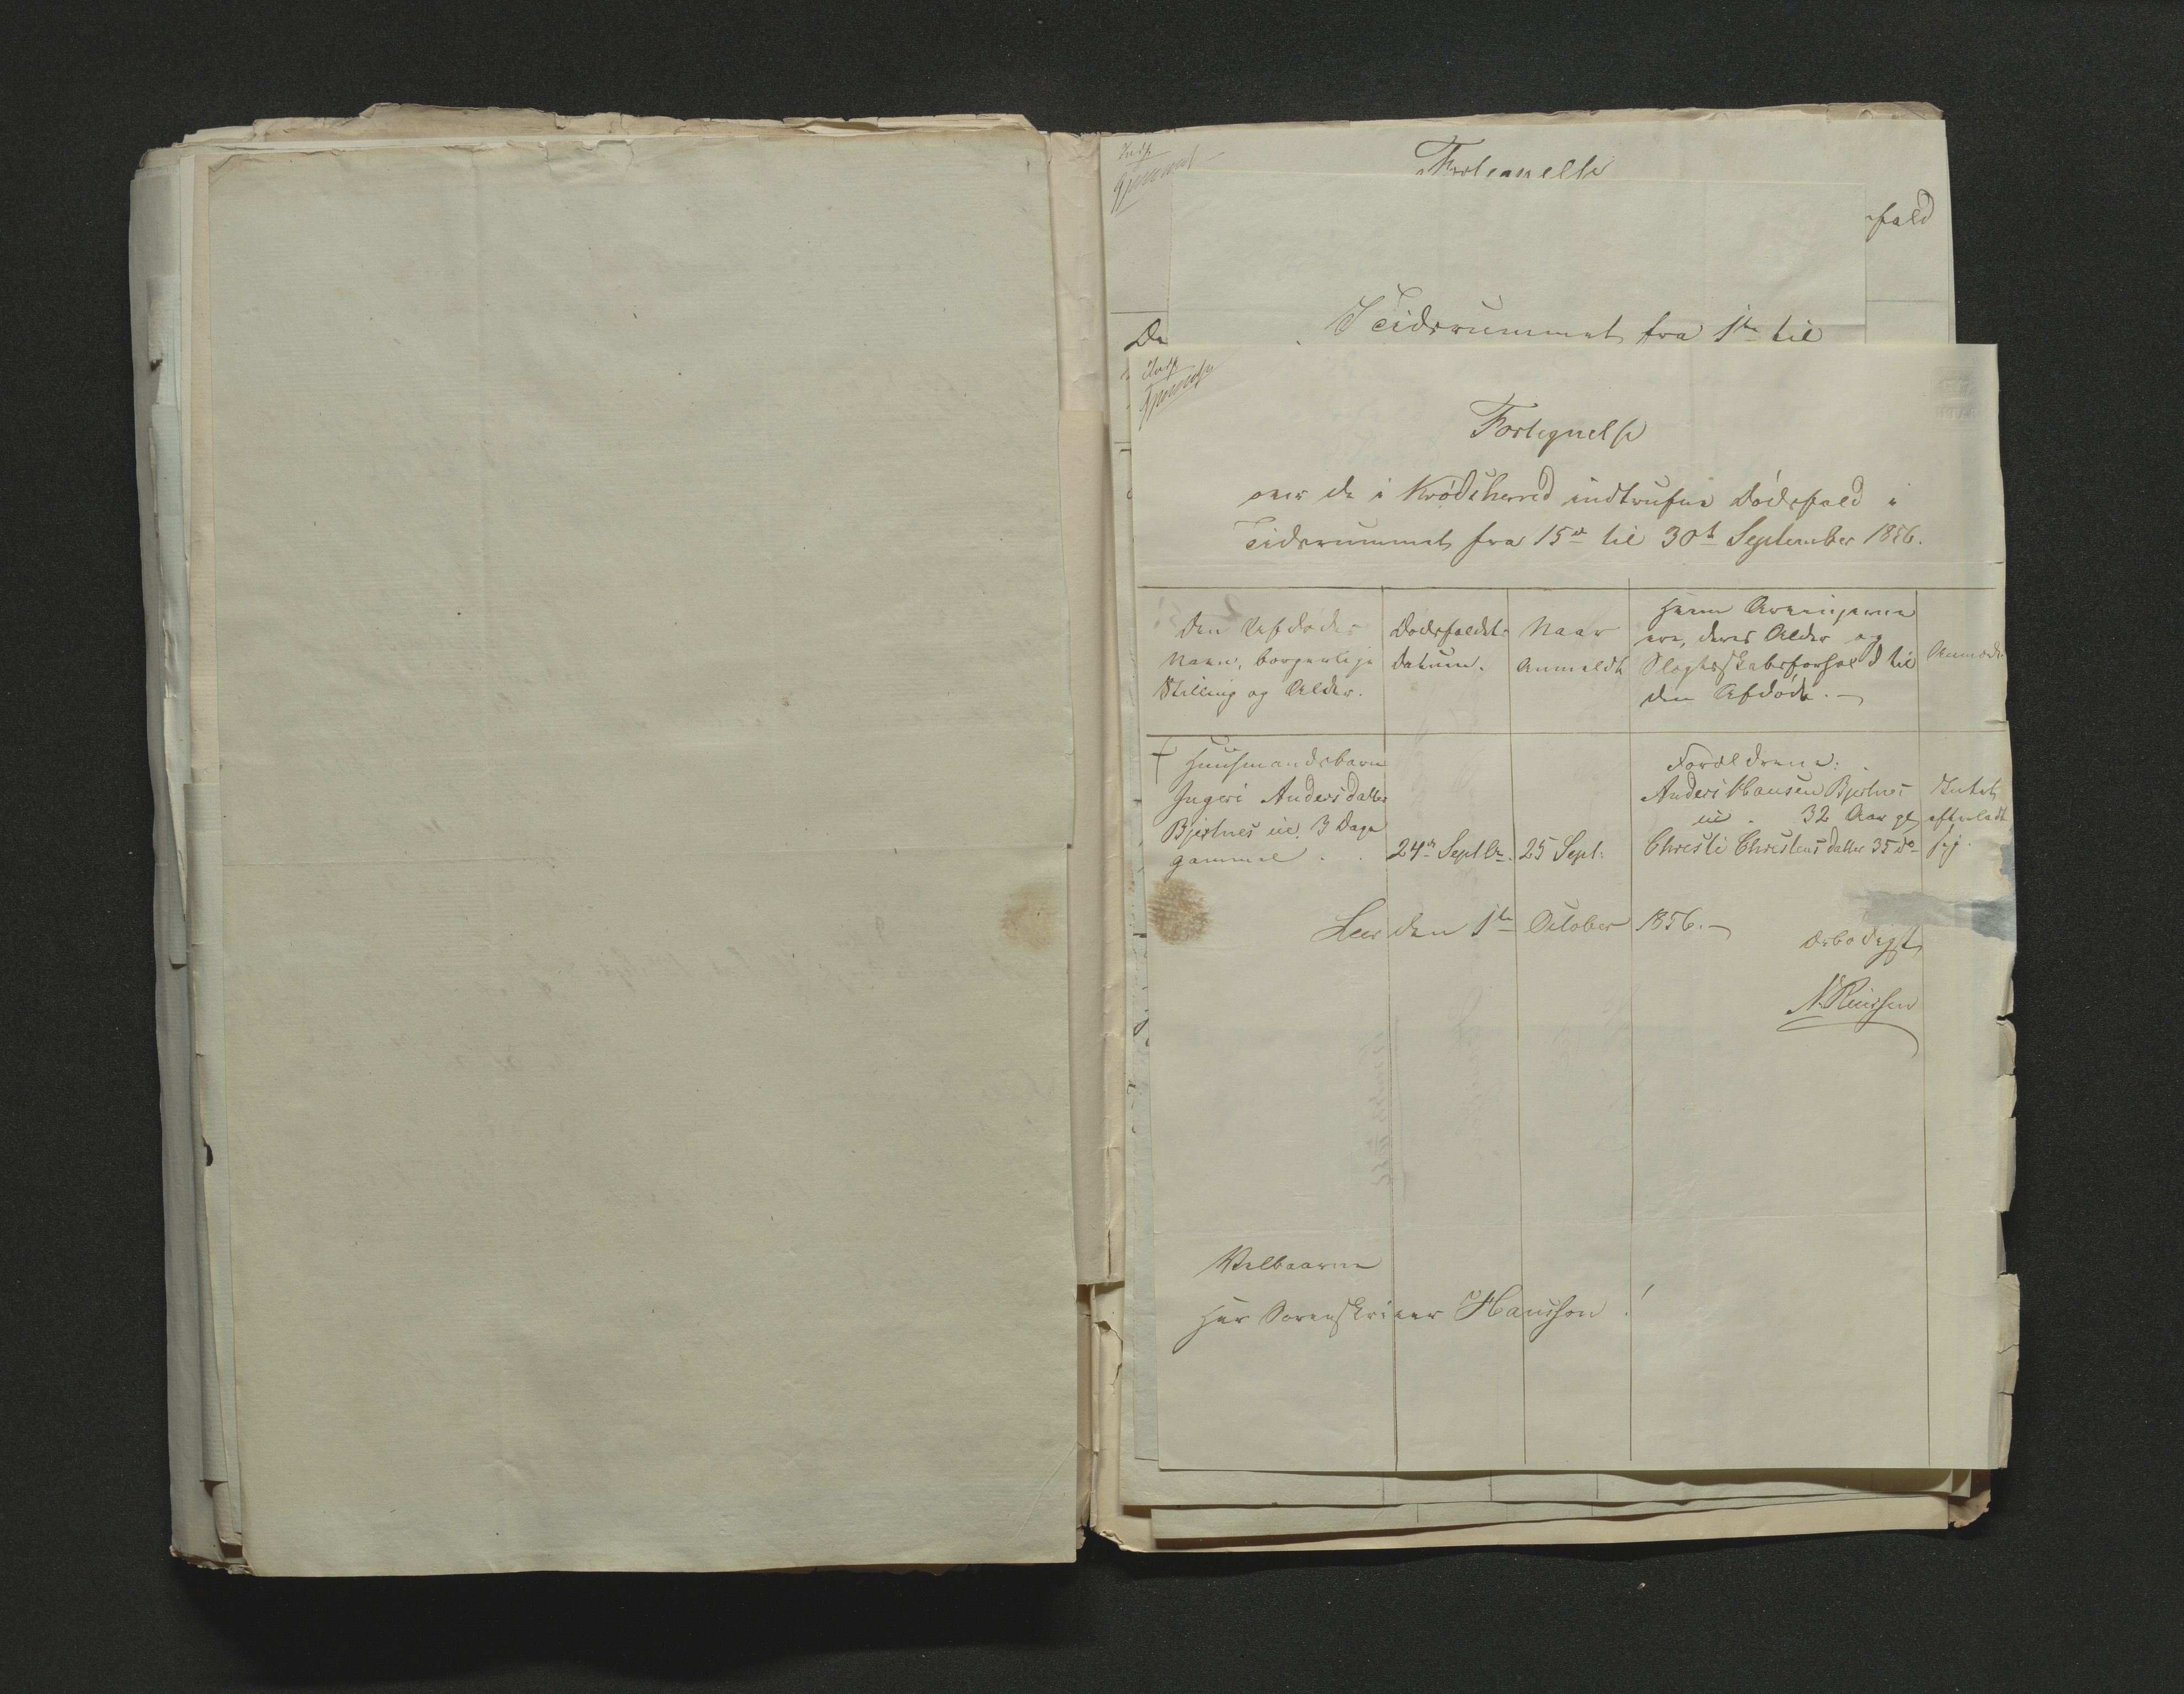 Fortegnelse
fald
I Tidsrummet fra 1ste til
De
Fortegnelse
over de i Krødsherred indtrufne Dødsfald i
Tidsrummet fra 15de til 30te September 1856.
Den Afdødes
Navn, borgerlige
Stilling og Alder.
Dødsfaldets
Datum.
Naar
Anmeldt
Hvem Arvingerne
ere, deres Alder og
Slægtsskabsforhold til
den Afdøde. —
Anmærk
Huusmandsbarn
Ingeri Andersdatter
Bjertnes eie 3 Dage
gammel . .
24de Septbr.
25 Sept:
Forældrene:
Anders Hansen Bjertnes
eie . 32 Aar gl
Christi Christensdatter 35 do
Intet
efterladt
sig.
Leer den 1ste October 1856. —
Ærbødigst
Velbaarne
Herr Sorenskriver Hansson!